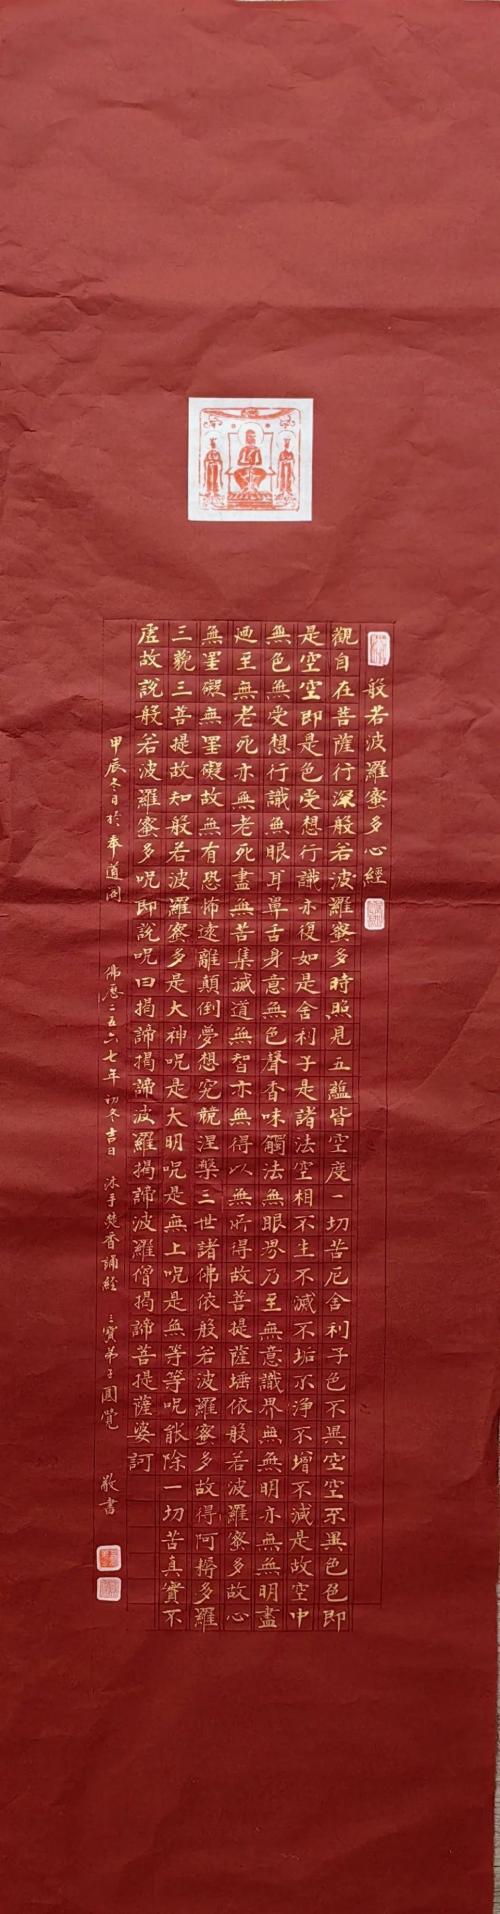 般若波羅蜜多心經
觀自在菩薩行深般若波羅蜜多時照見五蘊皆空度一切苦厄舍利子色不異空空不異色色即
是空空即是色受想行識亦復如是舍利子是諸法空相不生不滅不垢不淨不增不減是故空中
無色無受想行識無眼耳鼻舌身意無色聲香味觸法無眼界乃至無意識界無無明亦無無明盡
廼至無老死亦無老死盡無苦集滅道無智亦無得以無所得故菩提薩埵依般若波羅蜜多故心
無罣礙無罣礙故無有恐怖遠離顛倒夢想究競涅槃三世諸佛依般若波羅蜜多故得阿耨多羅
三藐三菩提故知般若波羅蜜多是大神呪是大明呪是無上呪是無等等呪能除一切苦真實不
虛故說般若波羅蜜多呪即說呪曰揭諦揭諦波羅揭諦波羅僧揭諦菩提薩婆訶
甲辰冬日於奉道閣 佛曆二五六七年初冬吉日 沐手焚香誦經 三寶弟子圓覺 敬書